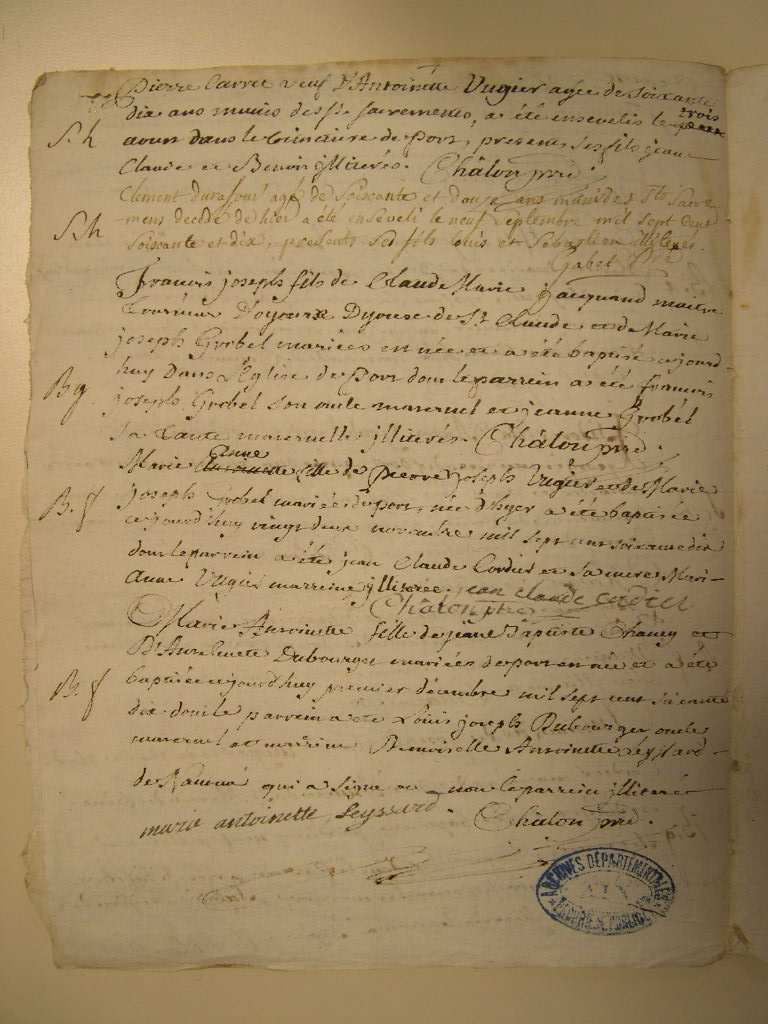 Pierre Carret veuf d'Antoinette Vugier agée de soixante
dix ans munis des sts sacrements, a été enseveli le trois
aoust dans le cimetiere de Port, presents ses fils jean
S. h
Claude et Benoit illiterés. Châlon ptre.
Clement durafour agé de Soissante et douze ans muni des Sts Sacre-
S. h
-mens decedé de hier a été enseveli le neuf Septembre mil Sept cent
Soissante et dix, presents Ses fils louis et Sebastien illiterés.
Gabet Ptre
Francois joseph fils de Claude Marie jacquand maitre
Tourneur D'oyonax Dyocese de St Claude et de Marie
joseph Grobel mariées est née et a été baptisé cejourd-
huy Dans L'Eglise de Port dont le parrein a été francois
B g.
joseph Grobel son oncle maternel et jeanne Grobel
sa Tante maternelle illiterés. Châlon ptre.
Marie Anne fille de Pierre joseph Vugier et de Marie
B. f
joseph Grobel mariés de port, née d'hyer a été baptisée
ce jourd'huy vingt deux novembre mil sept cent soixante dix
dont le parrein a été jean Claude Cordier et sa mere Mari-
anne Vugier marreine illiterée. jean claude cordier
Châlon ptre
Marie Antoinette fille de jean Baptiste Chaney et
D'Anthelmete Dubourget mariées de port est née et a été
B. f
baptisée cejourd'huy premier décembre mil sept cent soixante
dix dont le parrein a été Louis joseph Dubourget oncle
maternel et marreine Demoiselle Antoinette Leyssard
de Nantua qui a signé et non le parrein illiteré
marie antoinette Leyssard. Châlon ptre.
ARCHIVES DÉPARTEMENTALES
AIN